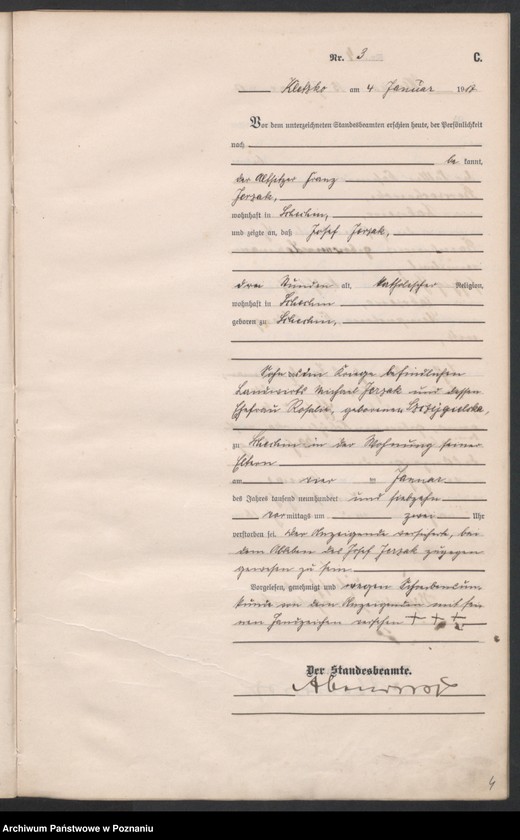 Nr. 3
C.
Kletzko am 4 Januar 1917
Vor dem unterzeichneten Standesbeamten erschien heute, der Persönlichkeit
nach
be kannt,
der Altsitzer Franz
Jerzak,
wohnhaft in
und zeigte an, daß Josef Jerzak,
drei Stunden alt, katholischer Religion,
wohnhaft in
geboren zu
Sohn des im Kriege befindlichen
Landwirts Michael Jerzak und dessen
Ehefrau Rosalie, geborenen
zu in der Wohnung seiner
Eltern
am vier ten Januar
des Jahres tausend neunhundert und siebzehn
vor mittags um zwei Uhr
verstorben sei. Der Anzeigende versichert, bei
dem Ableben des Josef Jerzak zugegen
gewesen zu sein.
Vorgelesen, genehmigt und wegen Schreibensun-
kunde von dem Anzeigenden mit sei-
nem Handzeichen versehen + + +
Der Standesbeamte.
4
Archiwum Państwowe w Poznaniu